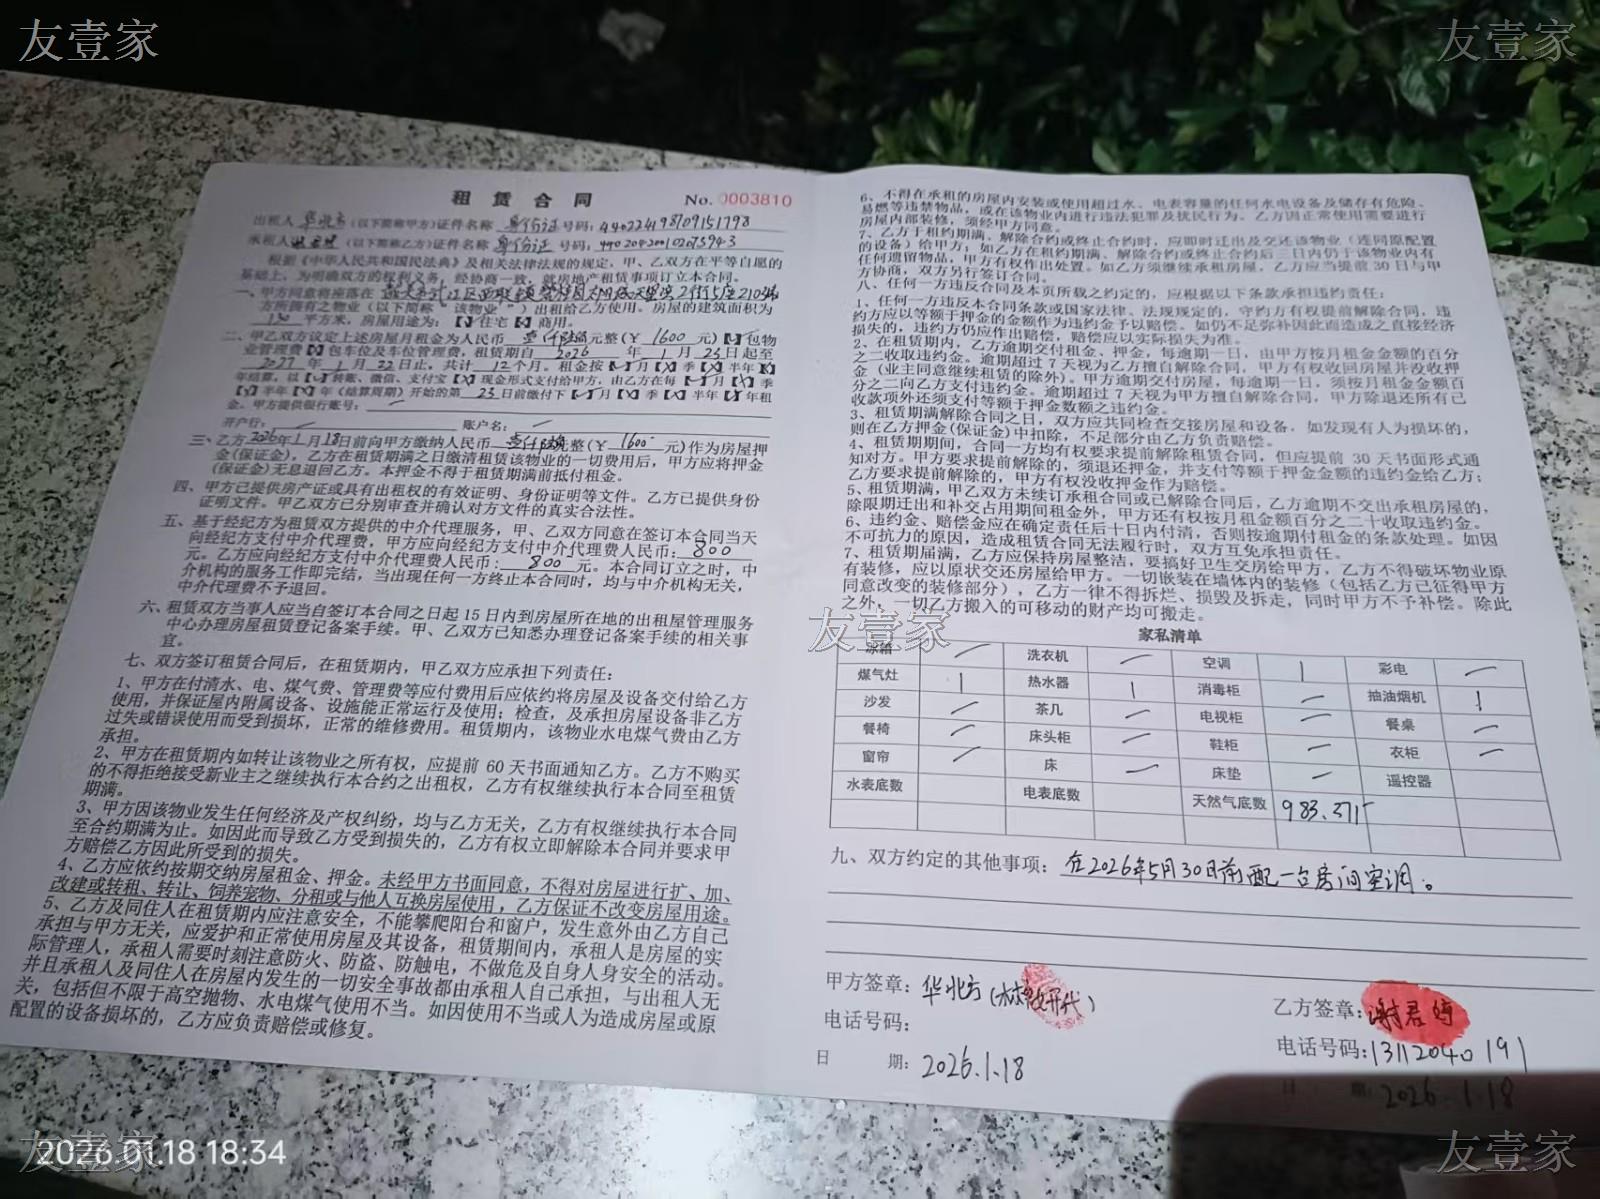 友壹家
友壹家
租 赁 合 同 No. 0003810
出租人 华北方 (以下简称甲方)证件名称 身份证 号码: 440224198709151798
承租人 (以下简称乙方)证件名称 身份证 号码:
根据《中华人民共和国民法典》及相关法律法规的规定,甲、乙双方在平等自愿的
基础上,为明确双方的权利义务,经协商一致,就房地产租赁事项订立本合同。
一、甲方同意将座落在
方所拥有之物业(以下简称“该物业”)出租给乙方使用。房屋的建筑面积为
平方米,房屋用途为:【】住宅【】商用。
二、甲乙双方议定上述房屋月租金为人民币 壹仟陆佰 元整(¥ 1600 元)【】包物
业管理费【】包车位及车位管理费,租赁期自 2026 年 1 月 23 日起至
2027 年 1 月 22 日止,共计 12 个月。租金按【】月【】季【】半年【】
年结算,以【】转账、微信、支付宝【】现金形式支付给甲方,由乙方在每【】月【】季
【】半年【】年(结算周期)开始的第 23 日前缴付下【】月【】季【】半年【】年租
金。甲方提供银行账号:
开户行: 账户名:
三、乙方 2026 年 1 月 18 日前向甲方缴纳人民币 壹仟陆佰 整(¥ 1600 元)作为房屋押
金(保证金),乙方在租赁期满之日缴清租赁该物业的一切费用后,甲方应将押金
(保证金)无息退回乙方。本押金不得于租赁期满前抵付租金。
四、甲方已提供房产证或具有出租权的有效证明、身份证明等文件。乙方已提供身份
证明文件。甲乙双方已分别审查并确认对方文件的真实合法性。
五、基于经纪方为租赁双方提供的中介代理服务,甲、乙双方同意在签订本合同当天
向经纪方支付中介代理费,甲方应向经纪方支付中介代理费人民币: 800
元。乙方应向经纪方支付中介代理费人民币: 800 元。本合同订立之时,中
介机构的服务工作即完结,当出现任何一方终止本合同时,均与中介机构无关,
中介代理费不予退回。
六、租赁双方当事人应当自签订本合同之日起 15 日内到房屋所在地的出租屋管理服务
中心办理房屋租赁登记备案手续。甲、乙双方已知悉办理登记备案手续的相关事
宜。
七、双方签订租赁合同后,在租赁期内,甲乙双方应承担下列责任:
1、甲方在付清水、电、煤气费、管理费等应付费用后应依约将房屋及设备交付给乙方
使用,并保证屋内附属设备、设施能正常运行及使用;检查,及承担房屋设备非乙方
过失或错误使用而受到损坏,正常的维修费用。租赁期内,该物业水电煤气费由乙方
承担。
2、甲方在租赁期内如转让该物业之所有权,应提前 60 天书面通知乙方。乙方不购买
的不得拒绝接受新业主之继续执行本合约之出租权,乙方有权继续执行本合同至租赁
期满。
3、甲方因该物业发生任何经济及产权纠纷,均与乙方无关,乙方有权继续执行本合同
至合约期满为止。如因此而导致乙方受到损失的,乙方有权立即解除本合同并要求甲
方赔偿乙方因此所受到的损失。
4、乙方应依约按期交纳房屋租金、押金。未经甲方书面同意,不得对房屋进行扩、加、
改建或转租、转让、饲养宠物、分租或与他人互换房屋使用,乙方保证不改变房屋用途。
5、乙方及同住人在租赁期内应注意安全,不能攀爬阳台和窗户,发生意外由乙方自己
承担与甲方无关,应爱护和正常使用房屋及其设备,租赁期间内,承租人是房屋的实
际管理人,承租人需要时刻注意防火、防盗、防触电,不做危及自身人身安全的活动。
并且承租人及同住人在房屋内发生的一切安全事故都由承租人自己承担,与出租人无
关,包括但不限于高空抛物、水电煤气使用不当。如因使用不当或人为造成房屋或原
配置的设备损坏的,乙方应负责赔偿或修复。
6、不得在承租的房屋内安装或使用超过水、电表容量的任何水电设备及储存有危险、
易燃等违禁物品,或在该物业内进行违法犯罪及扰民行为。乙方因正常使用需要进行
房屋内部装修,须经甲方同意。
7、乙方于租约期满、解除合约或终止合约时,应即时迁出及交还该物业(连同原配置
的设备)给甲方;如乙方在租约期满、解除合约或终止合约后三日内仍于该物业内有
任何遗留物品,甲方有权作出处置。如乙方须继续承租房屋,乙方应当提前 30 日与甲
方协商,双方另行签订合同。
八、任何一方违反合同及本页所载之约定的,应根据以下条款承担违约责任:
1、任何一方违反本合同条款或国家法律、法规规定的,守约方有权提前解除合同,违
约方应以等额于押金的金额作为违约金予以赔偿。如仍不足弥补因此而造成之直接经济
损失的,违约方仍应作出赔偿,赔偿应以实际损失为准。
2、在租赁期内,乙方逾期交付租金、押金,每逾期一日,由甲方按月租金金额的百分
之二收取违约金。逾期超过 7 天视为乙方擅自解除合同,甲方有权收回房屋并没收押
金(业主同意继续租赁的除外)。甲方逾期交付房屋,每逾期一日,须按月租金金额百
分之二向乙方支付违约金。逾期超过 7 天视为甲方擅自解除合同,甲方除退还所有已
收款项外还须支付等额于押金数额之违约金。
3、租赁期满解除合同之日,双方应共同检查交接房屋和设备,如发现有人为损坏的,
则在乙方押金(保证金)中扣除,不足部分由乙方负责赔偿。
4、租赁期期间,合同一方均有权要求提前解除租赁合同,但应提前 30 天书面形式通
知对方。甲方要求提前解除的,须退还押金,并支付等额于押金金额的违约金给乙方;
乙方要求提前解除的,甲方有权没收押金作为赔偿。
5、租赁期满,甲乙双方未续订承租合同或已解除合同后,乙方逾期不交出承租房屋的,
除限期迁出和补交占用期间租金外,甲方还有权按月租金额百分之二十收取违约金。
6、违约金、赔偿金应在确定责任后十日内付清,否则按逾期付租金的条款处理。如因
不可抗力的原因,造成租赁合同无法履行时,双方互免承担责任。
7、租赁期届满,乙方应保持房屋整洁,要搞好卫生交房给甲方,乙方不得破坏物业原
有装修,应以原状交还房屋给甲方。一切嵌装在墙体内的装修(包括乙方已征得甲方
同意改变的装修部分),乙方一律不得拆烂、损毁及拆走,同时甲方不予补偿。除此
之外,一切乙方搬入的可移动的财产均可搬走。
友壹家
家私清单
冰箱 一 洗衣机 一 空调 1 彩电 一
煤气灶 1 热水器 1 消毒柜 一 抽油烟机 1
沙发 一 茶几 一 电视柜 一 餐桌 一
餐椅 一 床头柜 一 鞋柜 一 衣柜 一
窗帘 一 床 一 床垫 一 遥控器
水表底数 电表底数 天然气底数 983.371
九、双方约定的其他事项: 在2026年5月30日前配一台房间空调。
甲方签章: 华北方
电话号码:
日 期: 2026.1.18
乙方签章: 谢君婷
电话号码: 13112040191
日 期: 2026.1.18
2026.01.18 18:34
友壹家
友壹家